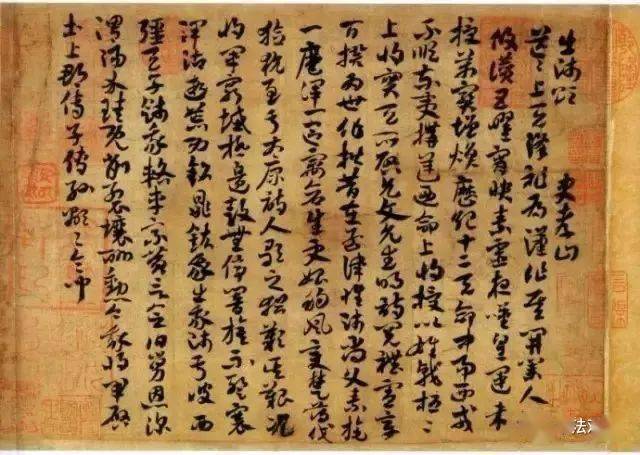 出師頌 史孝山
茫茫上天降祚為漢作基開業人
神攸讚五曜霄映素靈夜嘆皇運未
授萬寶增煥歷紀十二天命中易西戎
不順東夷構逆乃命上將授以雄戟桓桓
上將寔天所啟允文允武明詩閱禮憲章
百揆為世作楷昔在孟津惟師尚父素旄
一麾渾一區宇蒼生更始朔風變楚薄伐
獫狁至于太原詩人歌之猶歎其艱況
將軍窮城極邊鼓無停響旗不踅褰
澤霑遐荒功銘鼎鉉我出我師于彼西
疆天子餞我路車乘黃言念舊舅恩深
渭陽介珪既削裂壤酬勳今我將軍啟
土上郡傳子傳孫顯顯令問
法